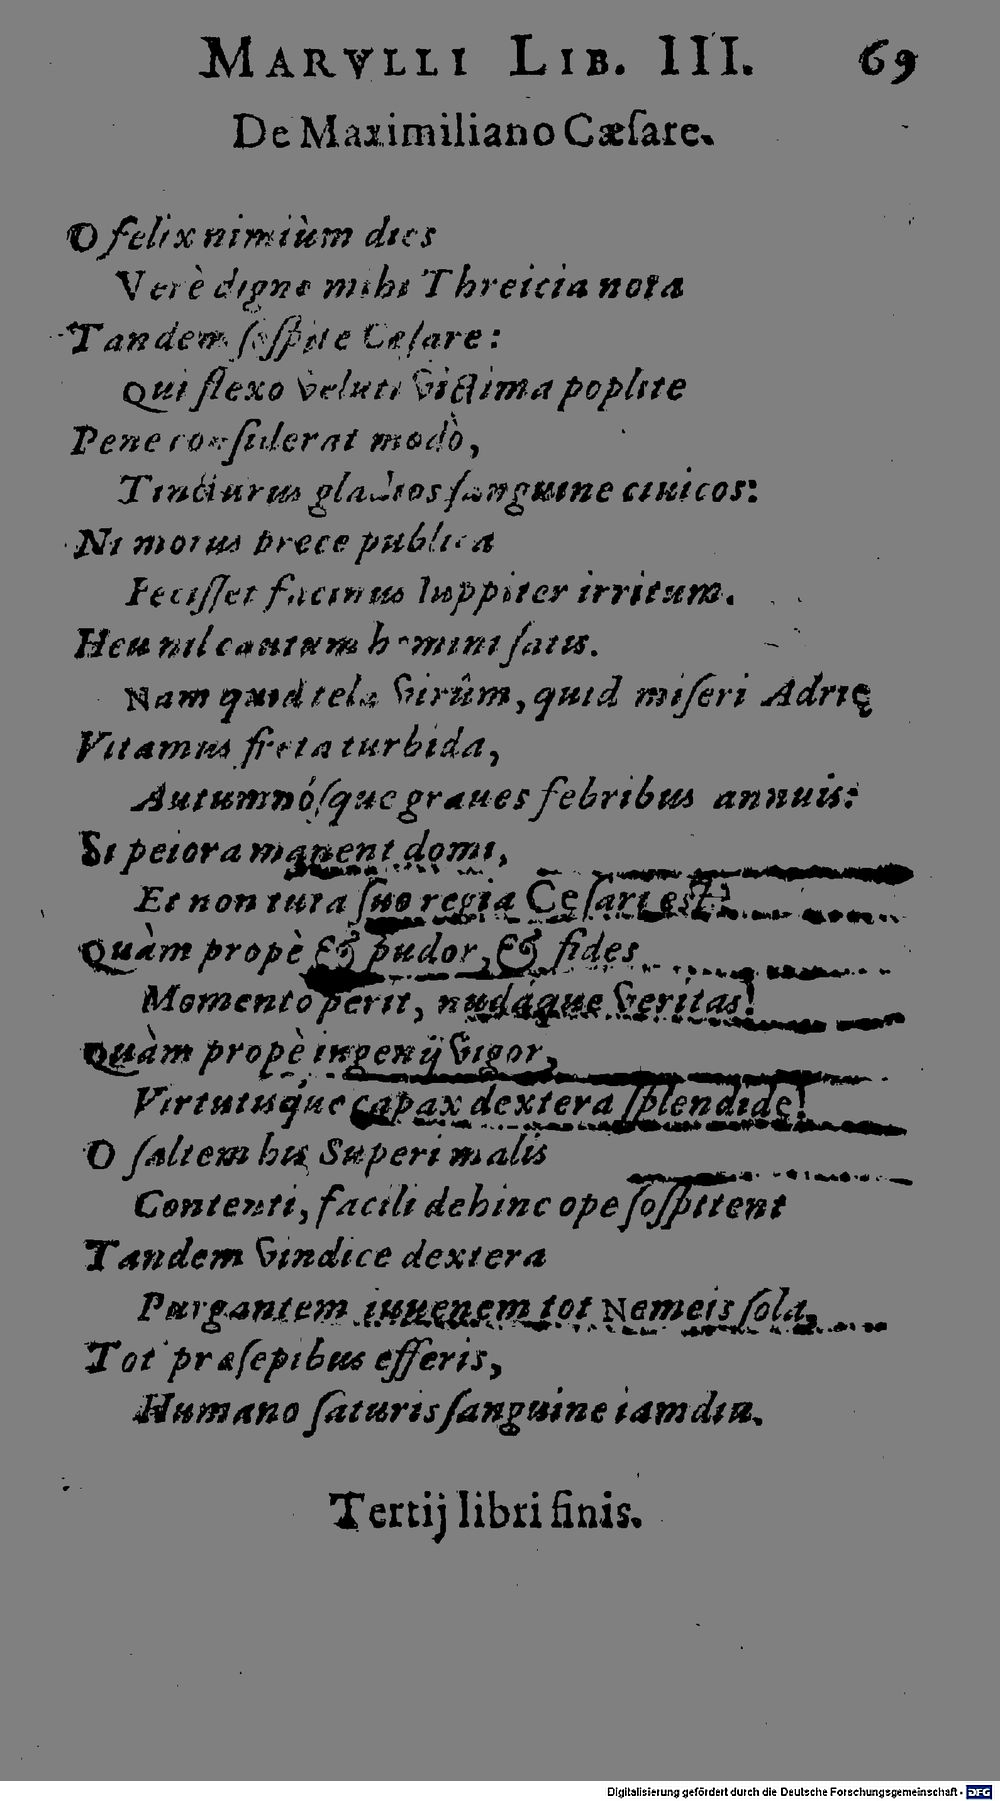 MARVLLI LIB. III. 69
De Maximiliano Cæſare.
O felix nimiùm dies
Verè digne mihi Threicia nota
Tandem ſoſpite Cæſare:
Qui flexo veluti victima poplite
Pene conſiderat modò,
Tincturus gladios ſanguine ciuicos:
Ni motus prece publica
Feciſſet facinus Iuppiter irritum.
Heu nil cautum homini ſatis.
Nam quid tela virûm, quid miſeri Adrię
Vitamus freta turbida,
Autumnóſque graues febribus annuis:
Si peiora manent domi,
Et non tuta ſuo regia Ceſari est?
Quàm propè & pudor, & fides
Momento perit, nudáque veritas!
Quàm propè ingenij vigor,
Virtutisq́ue capax dextera ſplendide!
O ſaltem his Superi malis
Contenti, facili dehinc ope ſoſpitent
Tandem vindice dextera
Purgantem iuuenem tot Nemeis ſola,
Tot præſepibus efferis,
Humano ſaturis ſanguine iamdiu.
Tertij libri finis.
Digitalisierung gefördert durch die Deutsche Forschungsgemeinschaft - DFG